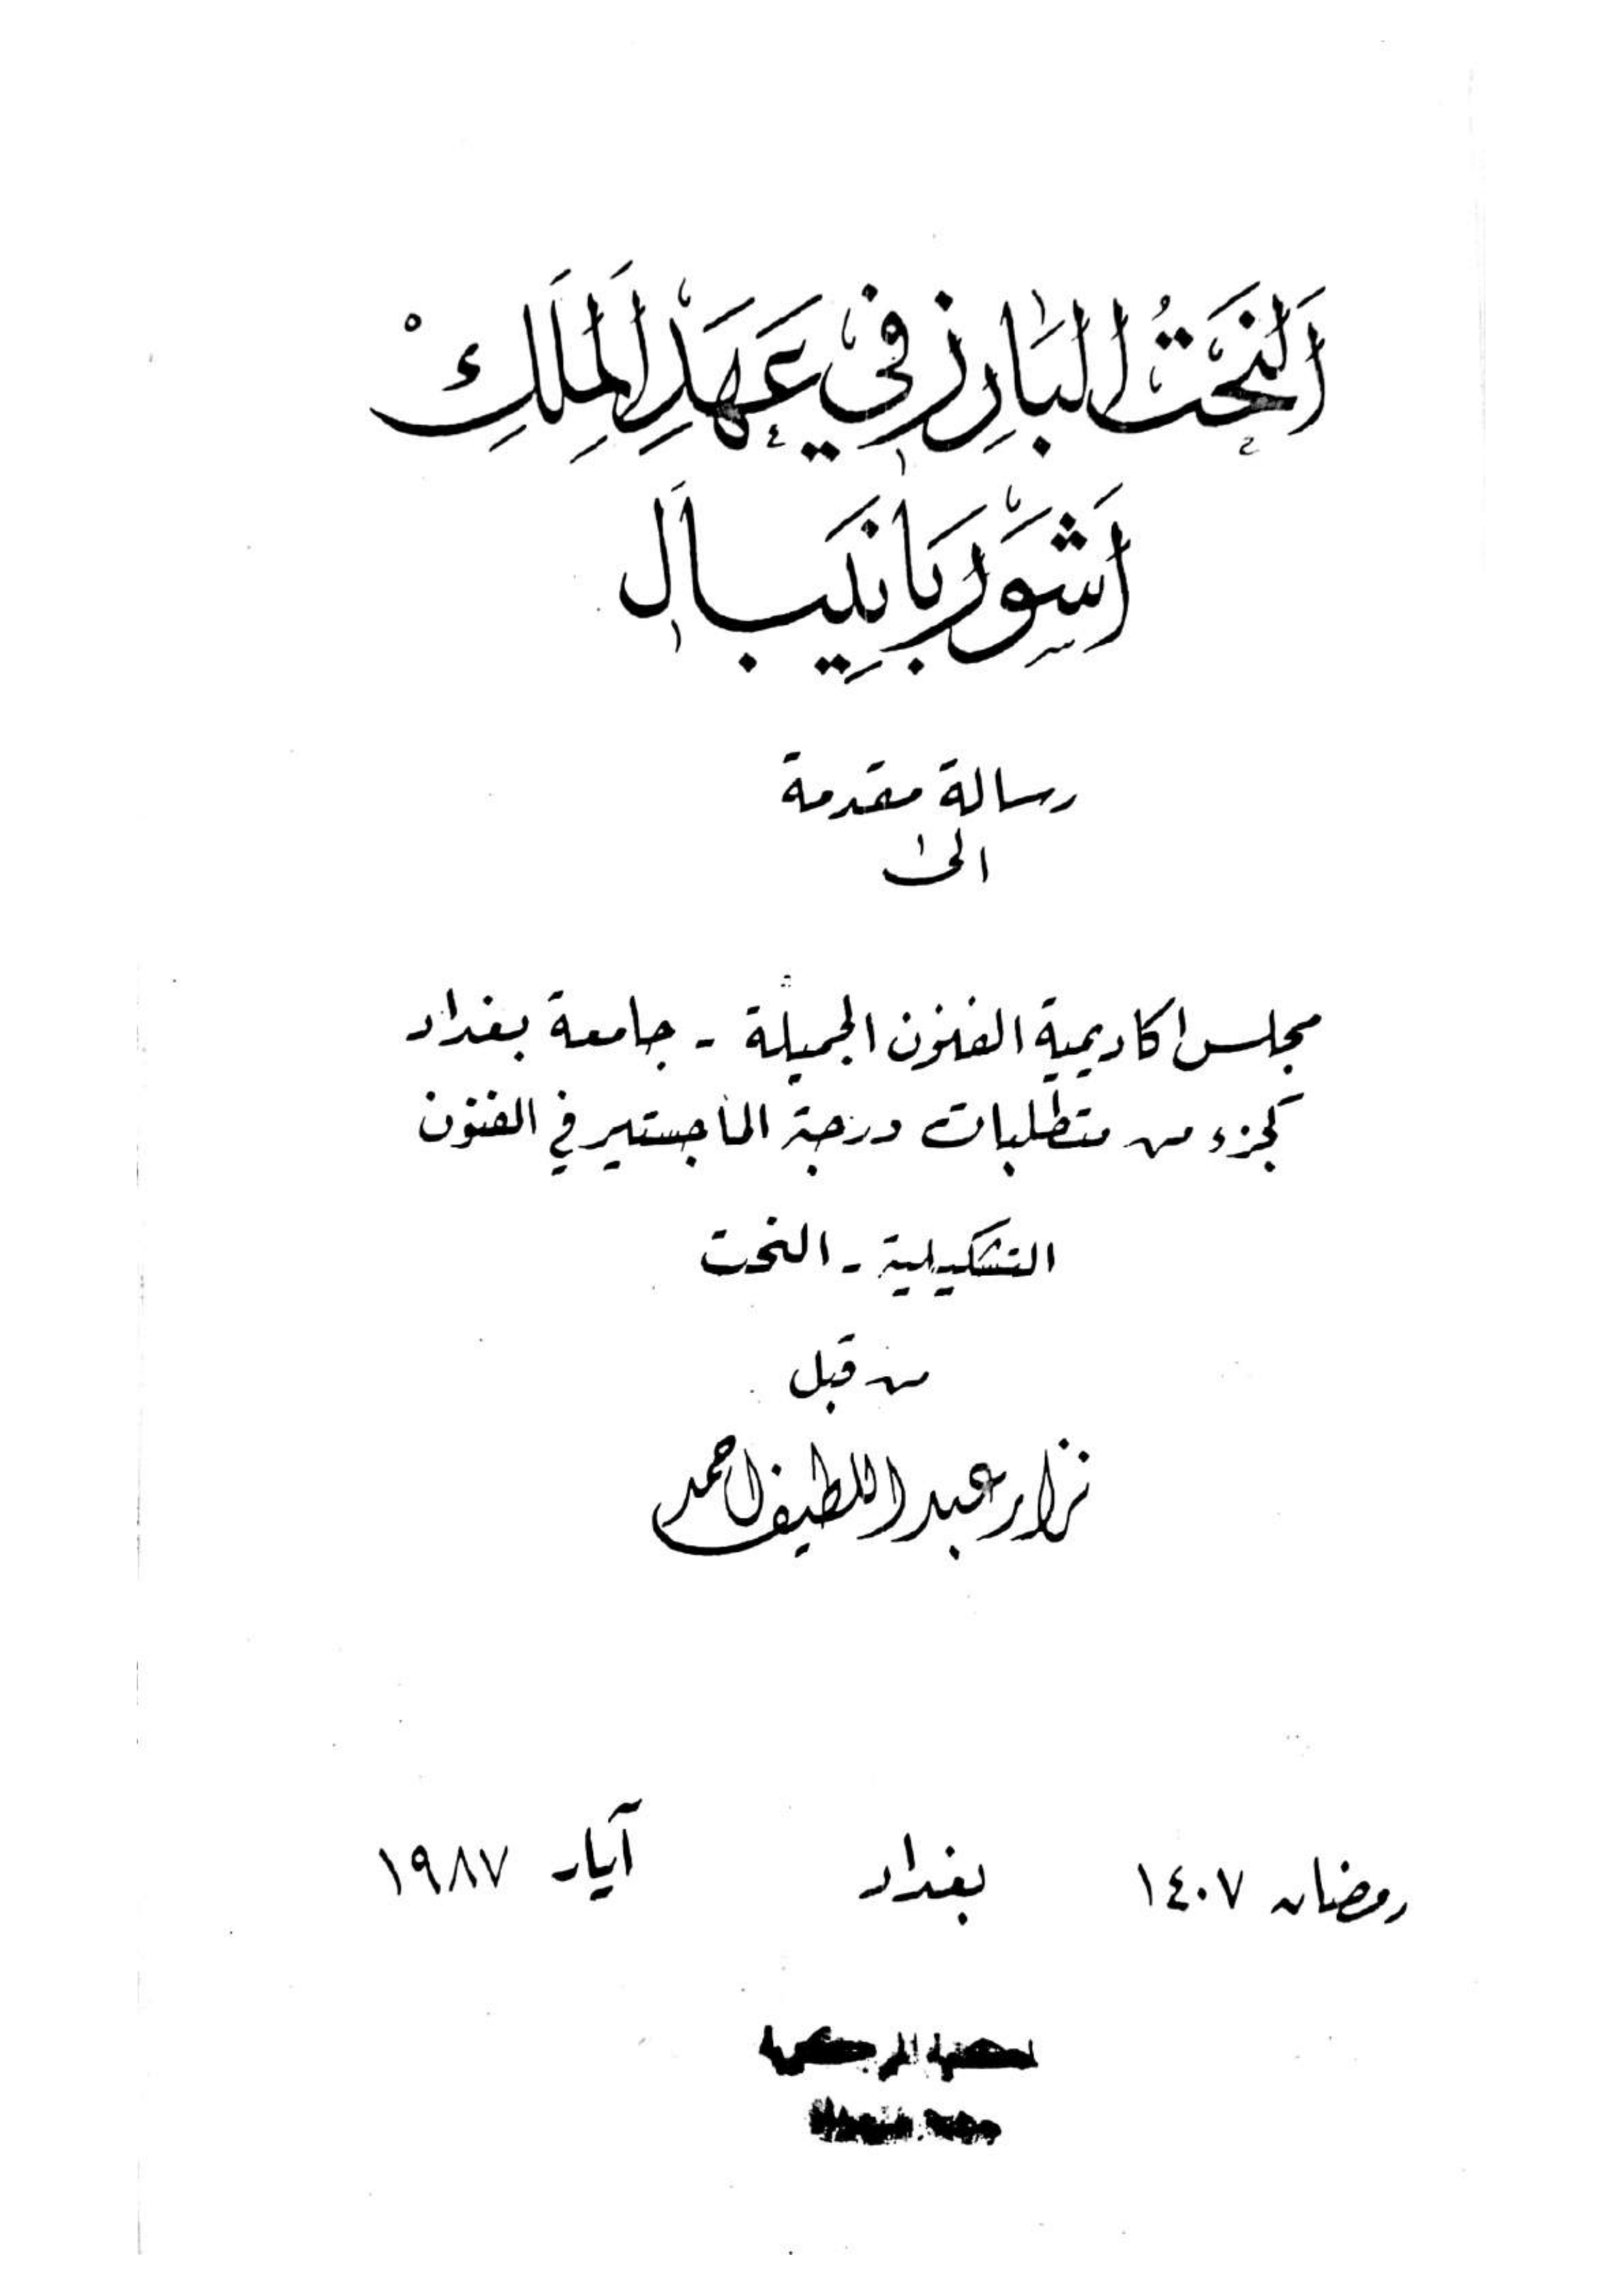 النحت البارز في عهد الملك
اشور بانيبال
رسالة مقدمة
الى
مجلس اكاديمية الفنون الجميلة - جامعة بغداد
كجزء من متطلبات درجة الماجستير في الفنون
التشكيلية - النحت
من قبل
نزار عبد اللطيف احمد
رمضان ١٤٠٧ بغداد آيار ١٩٨٧